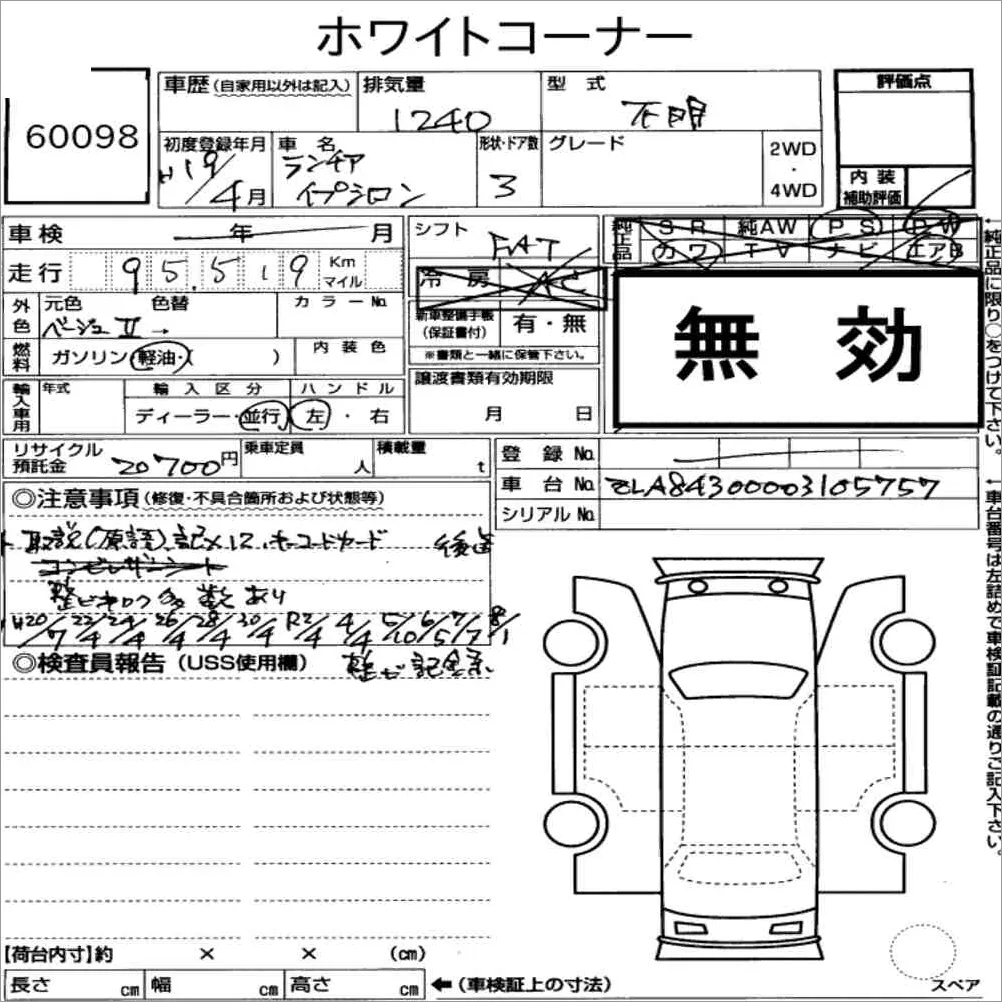 ホワイトコーナー
60098
車歴(自家用以外は記入) 排気量 1240 型式 不明
評価点
初度登録年月 H19/4月 車名 ランチア イプシロン 形状・ドア数 3 グレード 2WD・4WD
内装補助評価
車検 年 月
シフト FAT
純正品 SR 純AW PS PW
カワ TV ナビ エアB
走行 95,519 Km マイル
冷房 AC
外色 元色 ベージュII→ 色替 カラーNo.
新車整備手帳(保証書付) 有・無
※書類と一緒に保管下さい。
無効
燃料 ガソリン・軽油・( ) 内装色
輸入車用 年式 輸入区分 ハンドル
ディーラー・並行 左・右
譲渡書類有効期限
月 日
リサイクル預託金 20700円 乗車定員 人 積載量 t
登録No.
車台No. ZLA84300003105757
シリアルNo.
◎注意事項(修復・不具合箇所および状態等)
取説(原語)、記メ12、キーコードカード 後日
整ビキロク多数あり
H20/7 22/4 24/4 26/4 28/4 30/4 R2/4 4/4 5/10 6/5 7/7 8/1
◎検査員報告(USS使用欄)
整ビ記全系
【荷台内寸】約 × × (cm)
長さ cm 幅 cm 高さ cm ←(車検証上の寸法)
スペア
←純正品に限り○をつけて下さい。
←車台番号は左詰めで車検証記載の通りご記入下さい。